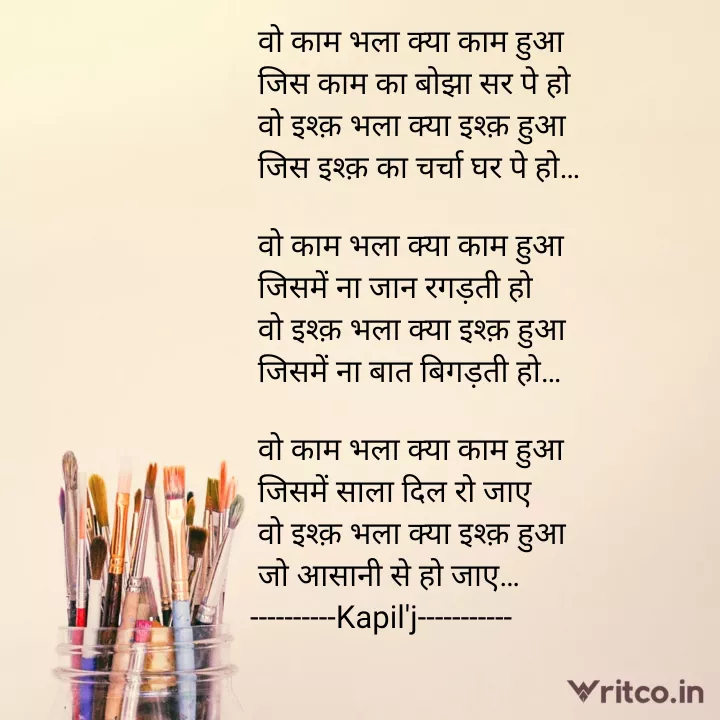 वो काम भला क्या काम हुआ
जिस काम का बोझा सर पे हो
वो इश्क़ भला क्या इश्क़ हुआ
जिस इश्क़ का चर्चा घर पे हो...
वो काम भला क्या काम हुआ
जिसमें ना जान रगड़ती हो
वो इश्क़ भला क्या इश्क़ हुआ
जिसमें ना बात बिगड़ती हो...
वो काम भला क्या काम हुआ
जिसमें साला दिल रो जाए
वो इश्क़ भला क्या इश्क़ हुआ
जो आसानी से हो जाए...
----------Kapil'j-----------
Writco.in